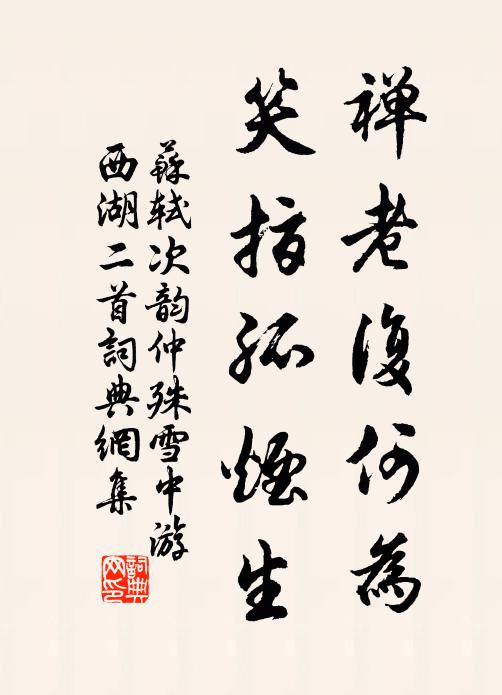 禅老復何為
笑指孤煙生
蘇軾次韵仲殊雪中游
西湖二首詞典網集
詞典
网印